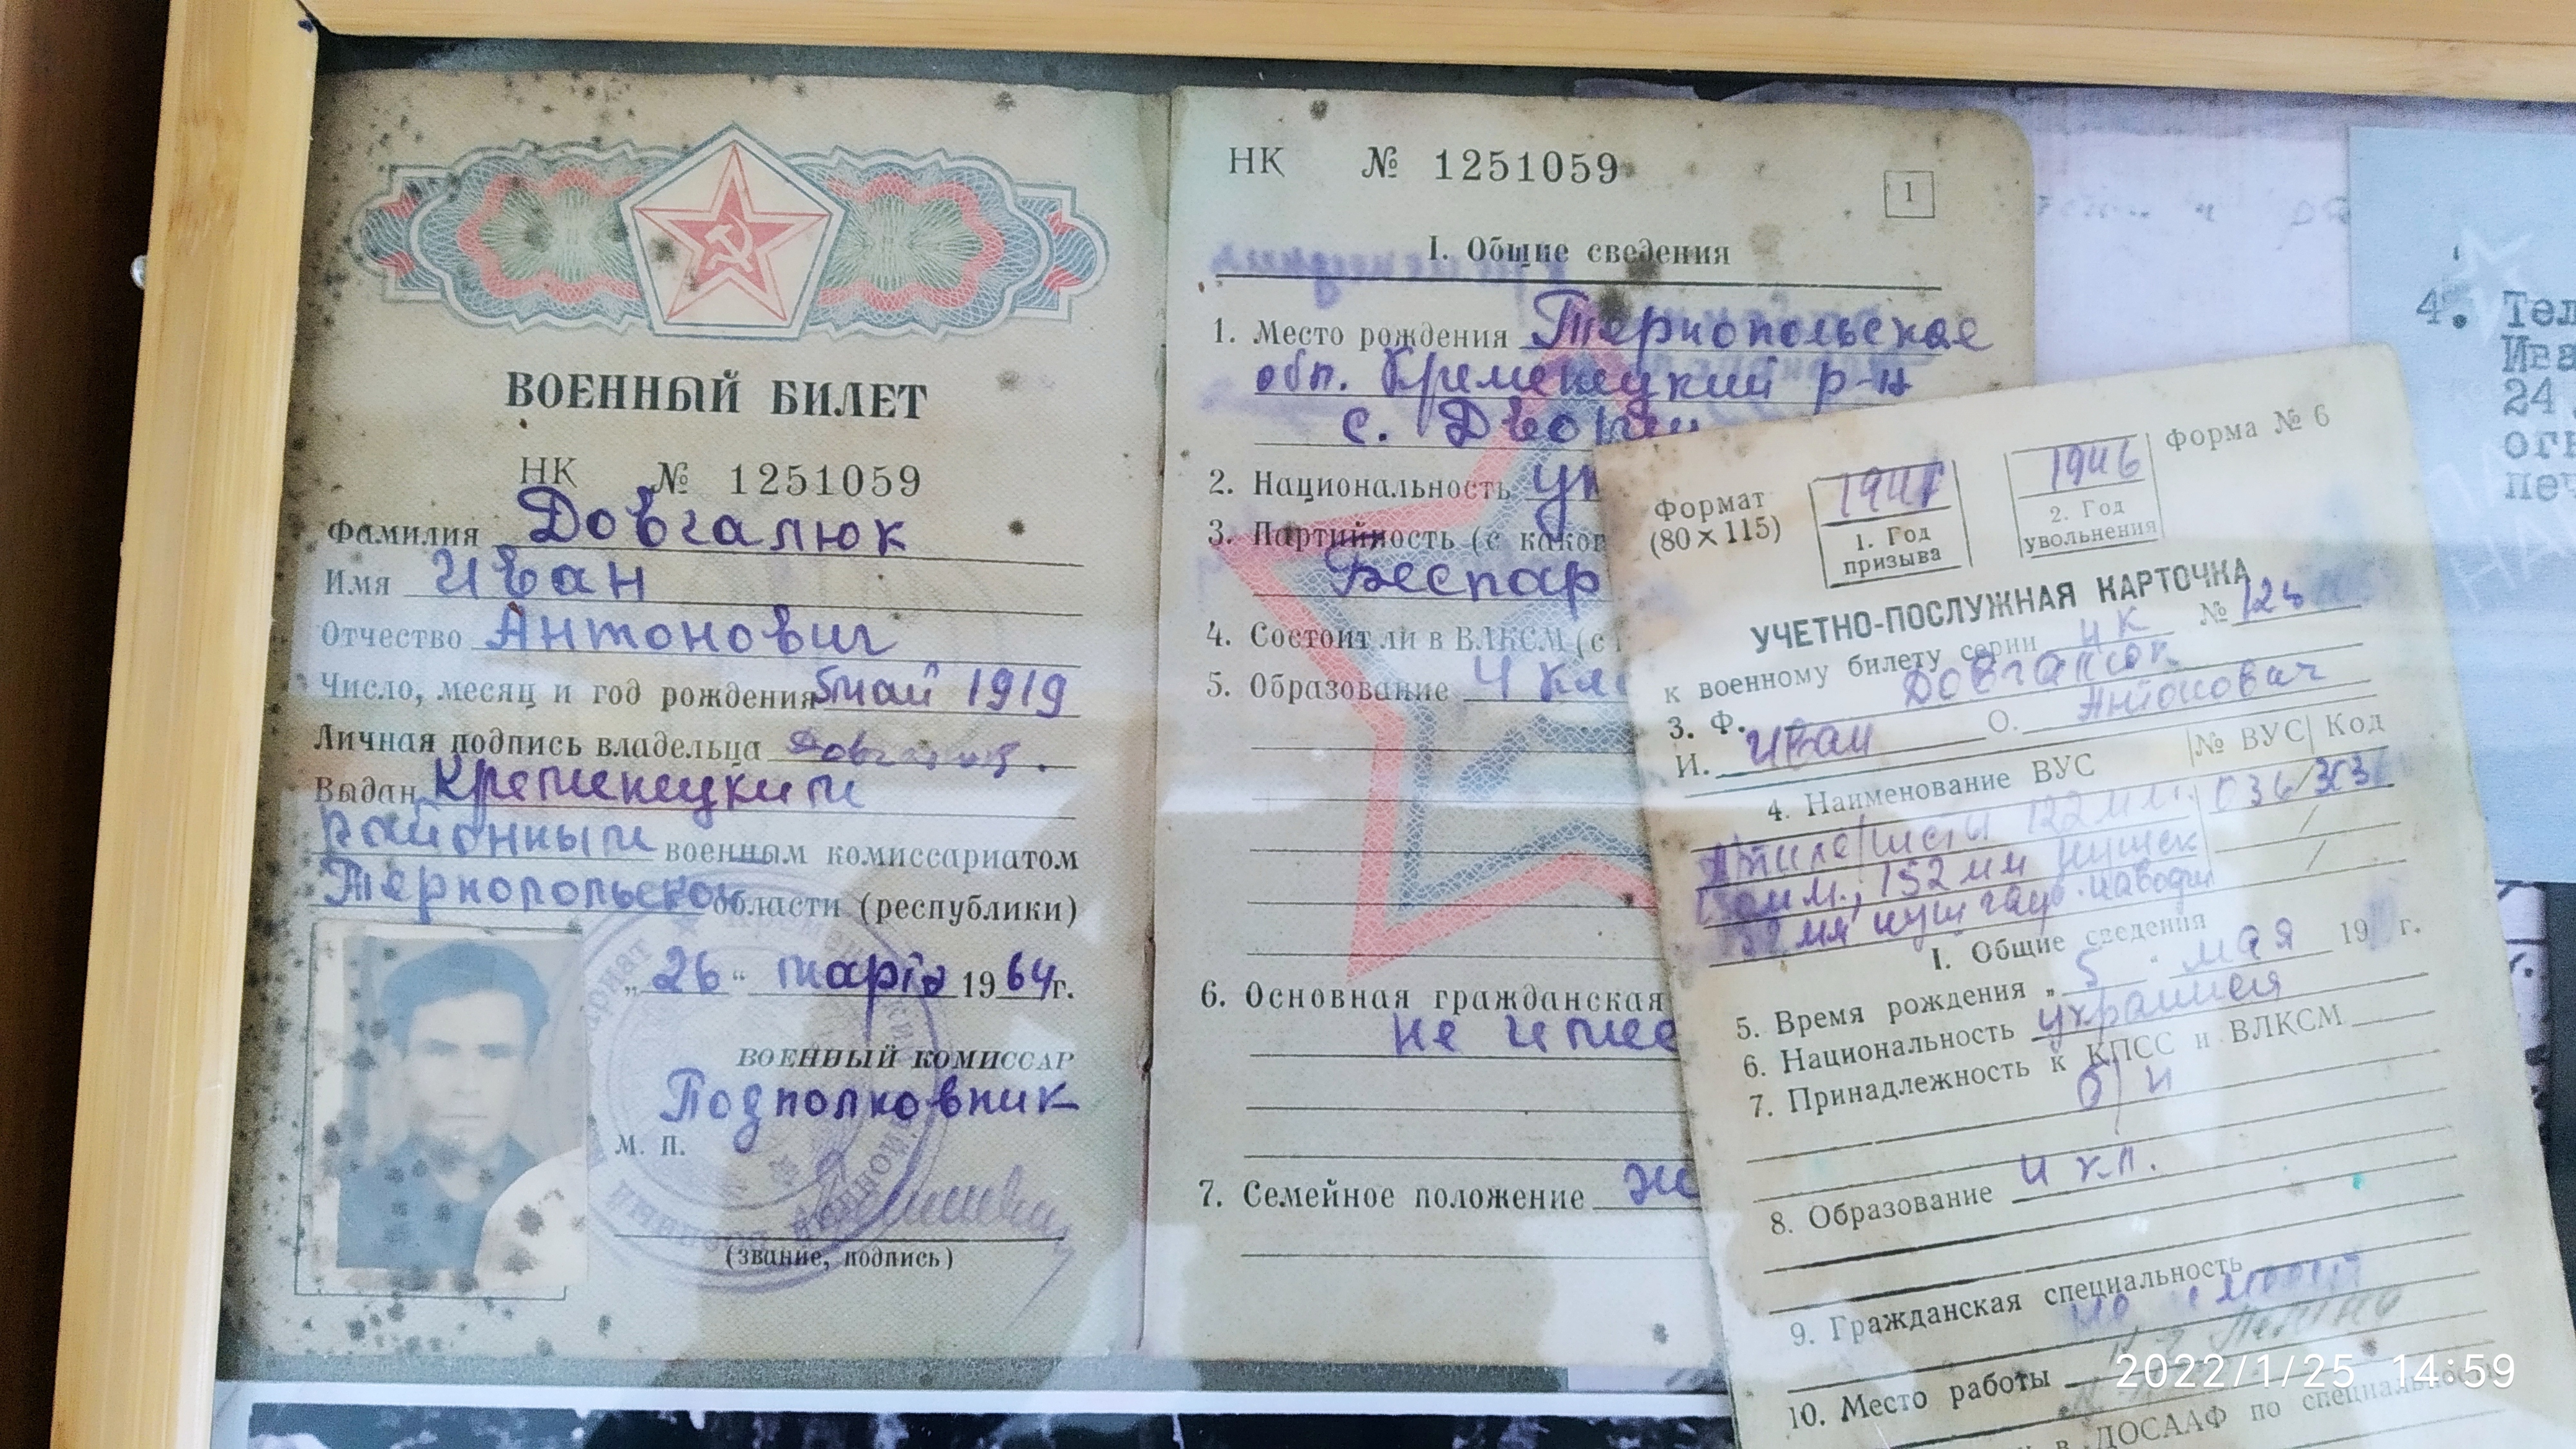 ВОЕННЫЙ БИЛЕТ
НК № 1251059
Фамилия Довгалюк
Имя Иван
Отчество Антонович
Число, месяц и год рождения 5 май 1919
Личная подпись владельца
Выдан Кременецким
районным военным комиссариатом
Тернопольской области (республики)
„26“ марта 1964 г.
ВОЕННЫЙ КОМИССАР
Подполковник
М. П.
(звание, подпись)
НК № 1251059
1
I. Общие сведения
1. Место рождения Тернопольская
обл. Кременецкий р-н
с.
2. Национальность ук
3. Партийность (с каког
Беспар
4. Состоит ли в ВЛКСМ (с
5. Образование 4 кла
6. Основная гражданская
не имее
7. Семейное положение
Форма № 6
Формат
(80×115)
1. Год
призыва
1946
2. Год
увольнения
УЧЕТНО-ПОСЛУЖНАЯ КАРТОЧКА
к военному билету серии НК №
3. Ф. Довгалюк
И. Иван О. Антонович
4. Наименование ВУС № ВУС Код
122 мм
152 мм пушек
152 мм
I. Общие сведения
5. Время рождения „5“ мая 19 г.
6. Национальность украинец
7. Принадлежность к КПСС и ВЛКСМ
б/п
8. Образование 4 кл.
9. Гражданская специальность
10. Место работы
в ДОСААФ по специальнос
4. Тел
Ива
24
2022/1/25 14:59